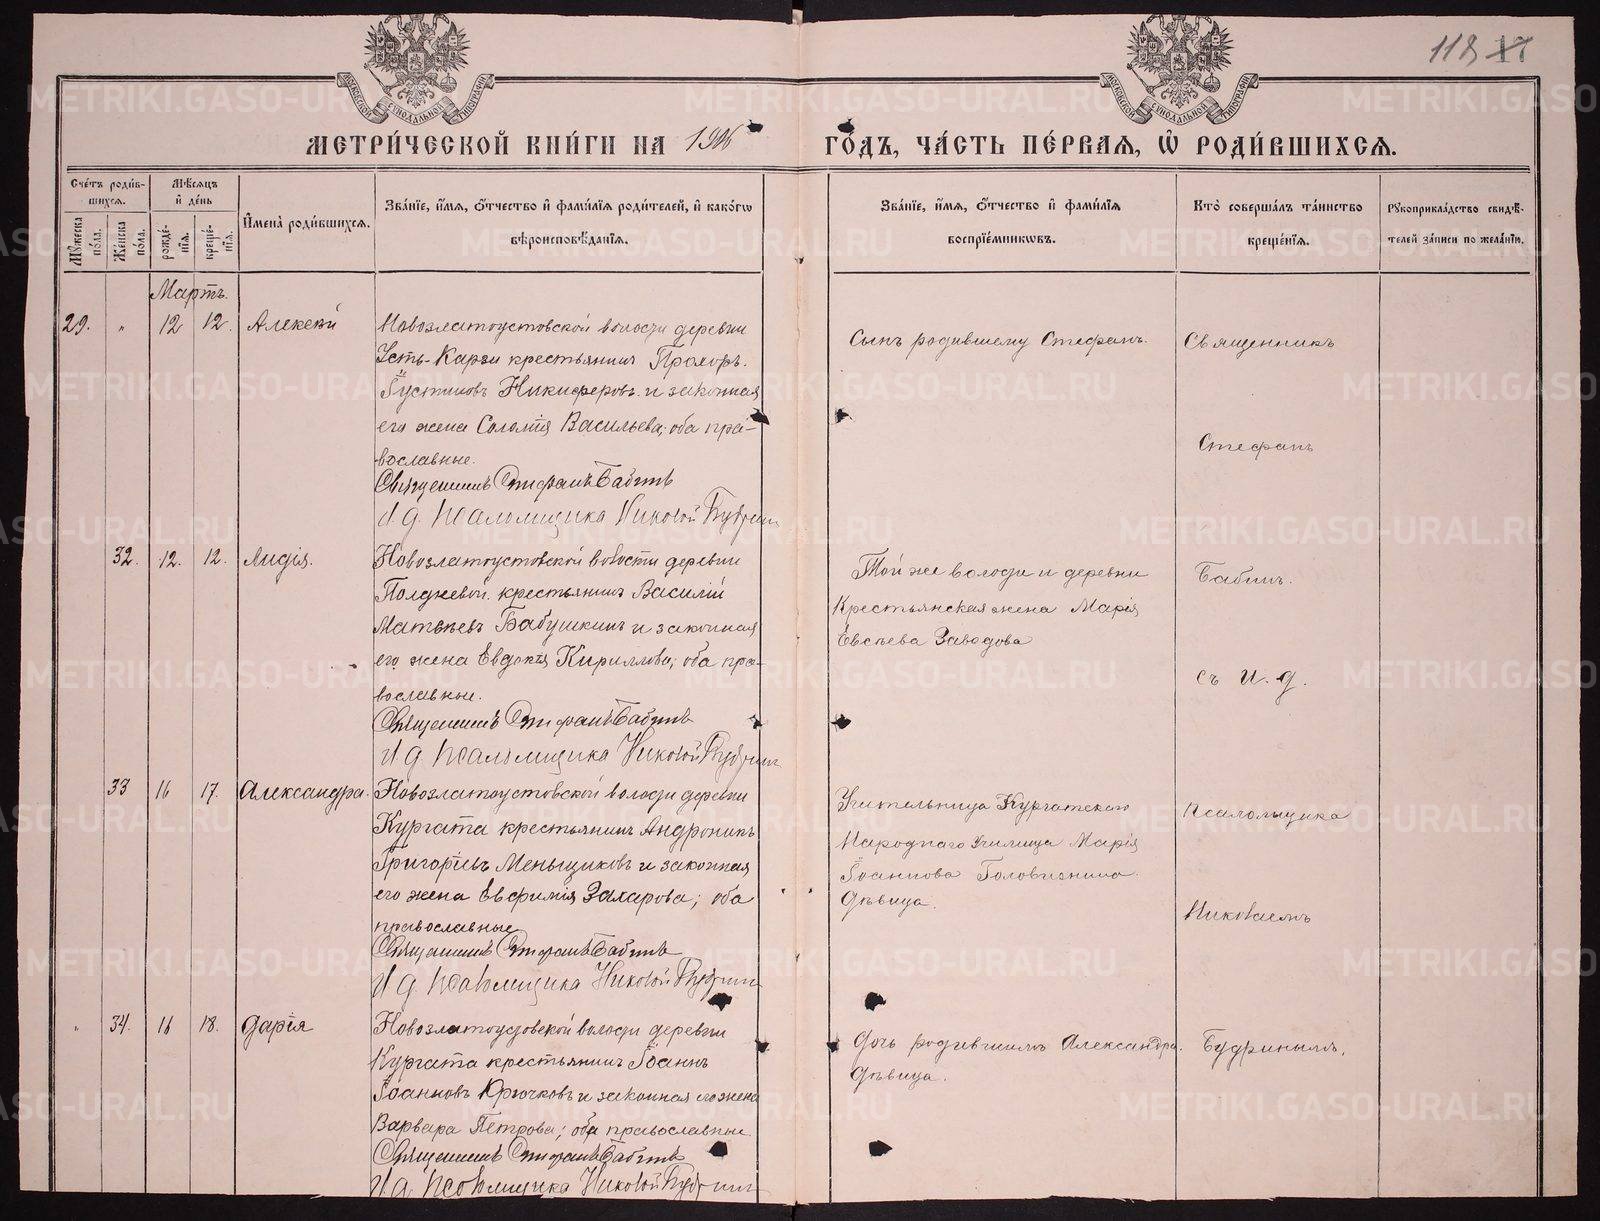 118 17
МЕТРИ́ЧЕСКОЙ КНИ́ГИ НА 1906 ГО́ДЪ, ЧА́СТЬ ПЕ́РВАЯ, Ѡ РОДИ́ВШИХСЯ.
Сче́тъ роди́вшихся.
Мꙋжеска по́ла.
Же́нска по́ла.
Мѣ́сяцъ и де́нь
рожде́нїя.
креще́нїя.
Имена̀ роди́вшихся.
Зва́нїе, и́мя, ѻ́тчество и фами́лїя роди́телей, и како́гѡ
вѣроисповѣ́данїя.
Зва́нїе, и́мя, ѻ́тчество и фами́лїя
воспрїе́мникѡвъ.
Кто̀ соверша́лъ та́инство
креще́нїя.
Рꙋкоприкла́дство свидѣ́-
телей за́писи по жела́нїю.
Мартъ.
29. " 12 12. Алексѣй
Новозлатоустовской волости деревни
Усть-Карзи крестьянинъ Прохоръ.
Iустиновъ Никифоровъ и законная
его жена Соломiя Васильева; оба пра-
вославные.
Священникъ Стефанъ Бабинъ
И. д. Псаломщика Николай Будринъ
Сынъ родившему Стефанъ.
Священникъ
Стефанъ
32. 12. 12. Лидiя.
Новозлатоустовской волости деревни
Полдневой крестьянинъ Василiй
Матвѣевъ Бабушкинъ и законная
его жена Евдокiя Кириллова; оба пра-
вославные.
Священникъ Стефанъ Бабинъ
И д. Псаломщика Николай Будринъ
Той же волости и деревни
Крестьянская жена Марiя
Евсѣева Заводова
Бабинъ.
съ и. д.
33 16 17. Александра.
Новозлатоустовской волости деревни
Кургата крестьянинъ Андроникъ
Григорiевъ Меньщиковъ и законная
его жена Евфимiя Захарова; оба
православные
Священникъ Стефанъ Бабинъ
И д. Псаломщика Николай Будринъ
Учительница Кургатскаго
Народнаго Училища Марiя
Iоаннова Головизнина.
Дѣвица.
Псаломщика
Николаемъ
" 34. 16 18. Дарiя
Новозлатоустовской волости деревни
Кургата крестьянинъ Iоаннъ
Iоанновъ Крючковъ и законная его жена
Варвара Петрова; оба православные.
Священникъ Стефанъ Бабинъ
И д. Псаломщика Николай Будринъ
Дочь родившимъ Александра.
Дѣвица.
Будринымъ.
METRIKI.GASO-URAL.RU